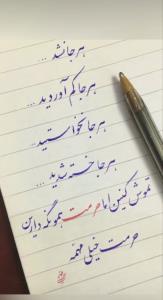 هر جا نشد ...
هر جا کم آوردید ...
هر جا نخواستید ...
هر جا خسته شدید ...
تموش کنین اما حرمت همو نگه دارین
حرمت خیلی مهمه